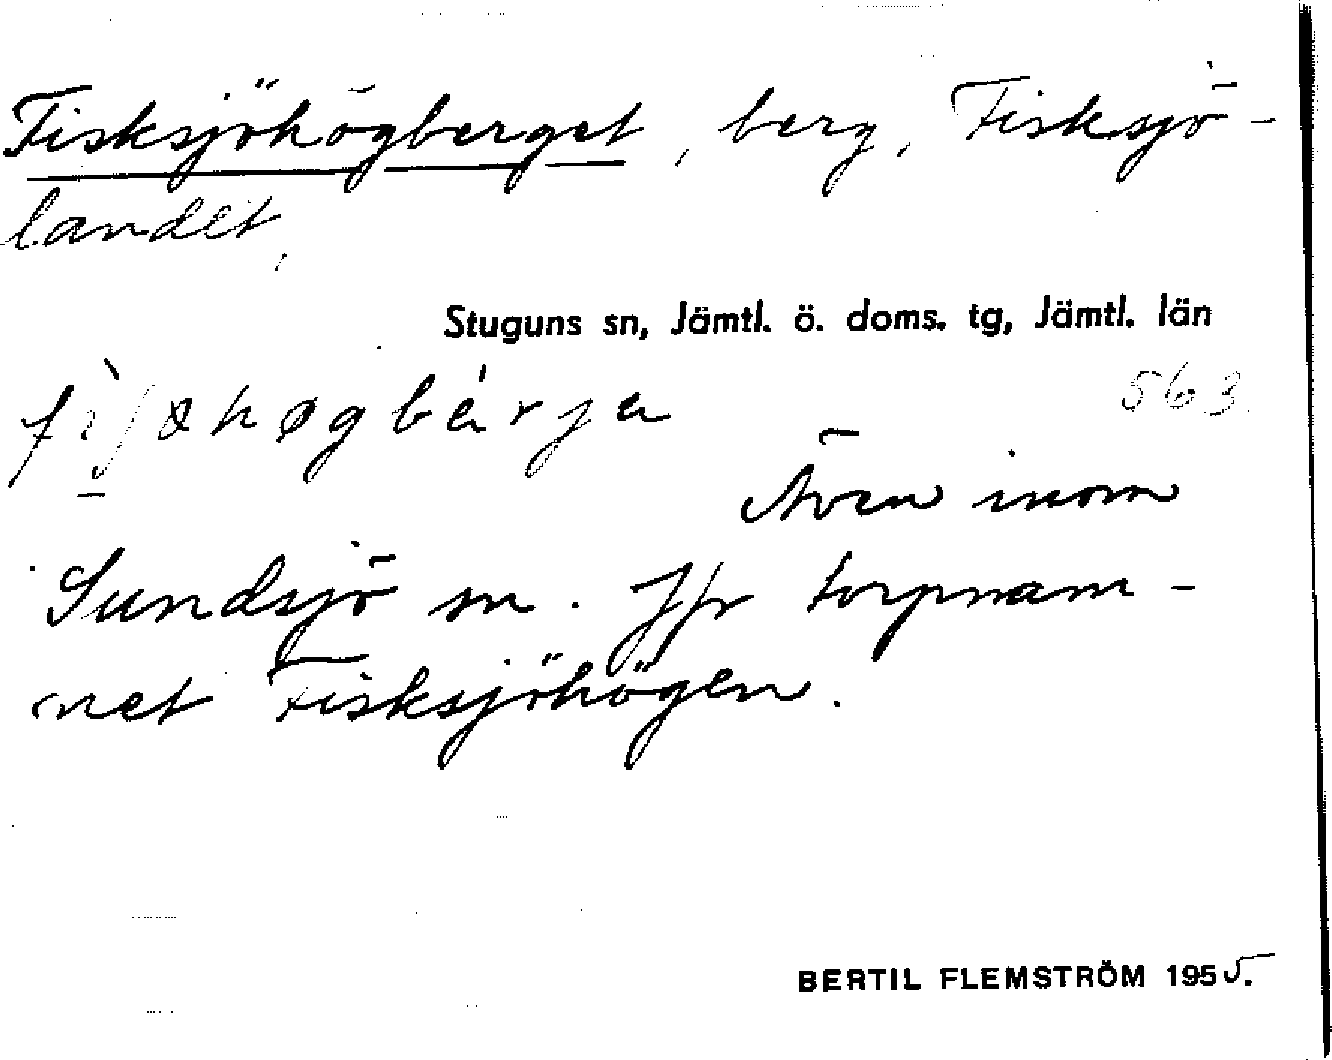 Fisksjöhögberget, berg, Fisksjö-
landet,
Stuguns sn, Jämtl. ö. doms. tg, Jämtl. län
563
Även inom
Sundsjö sn. Jfr torpnam-
net Fisksjöhögen.
BERTIL FLEMSTRÖM 1955.